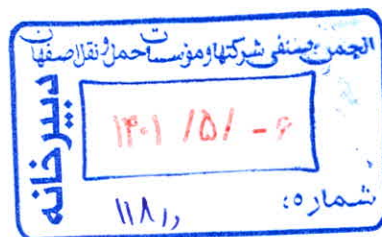 انجمن صنفی شرکتها و مؤسسات حمل و نقل اصفهان
دبیرخانه
۱۴۰۱ /۵/ -۶
شماره: